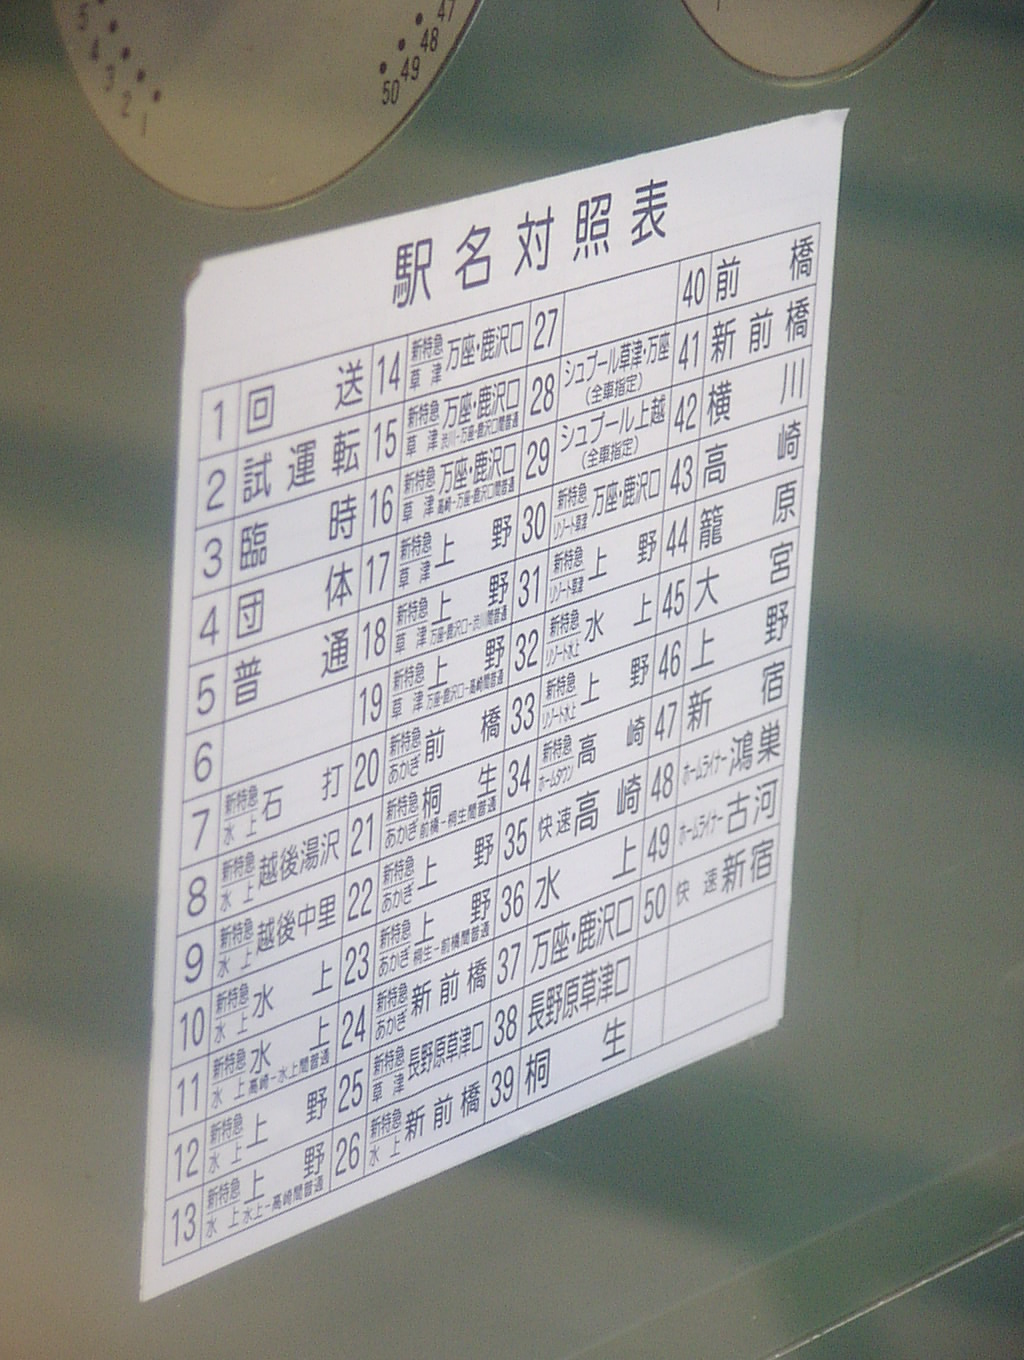 5
4
3
2
1
47
48
49
50
駅名対照表
1 回送
2 試運転
3 臨時
4 団体
5 普通
6
7 新特急 水上 石打
8 新特急 水上 越後湯沢
9 新特急 水上 越後中里
10 新特急 水上 水上
11 新特急 水上 水上 高崎－水上間普通
12 新特急 水上 上野
13 新特急 水上 上野 水上－高崎間普通
14 新特急 草津 万座・鹿沢口
15 新特急 草津 万座・鹿沢口 渋川－万座・鹿沢口間普通
16 新特急 草津 万座・鹿沢口 高崎－万座・鹿沢口間普通
17 新特急 草津 上野
18 新特急 草津 上野 万座・鹿沢口－渋川間普通
19 新特急 草津 上野 万座・鹿沢口－高崎間普通
20 新特急 あかぎ 前橋
21 新特急 あかぎ 桐生 前橋－桐生間普通
22 新特急 あかぎ 上野
23 新特急 あかぎ 上野 桐生－前橋間普通
24 新特急 あかぎ 新前橋
25 新特急 草津 長野原草津口
26 新特急 水上 新前橋
27
28 シュプール草津・万座 (全車指定)
29 シュプール上越 (全車指定)
30 新特急 リゾート草津 万座・鹿沢口
31 新特急 リゾート草津 上野
32 新特急 リゾート水上 水上
33 新特急 リゾート水上 上野
34 新特急 ホームタウン 高崎
35 快速 高崎
36 水上
37 万座・鹿沢口
38 長野原草津口
39 桐生
40 前橋
41 新前橋
42 横川
43 高崎
44 籠原
45 大宮
46 上野
47 新宿
48 ホームライナー 鴻巣
49 ホームライナー 古河
50 快速 新宿